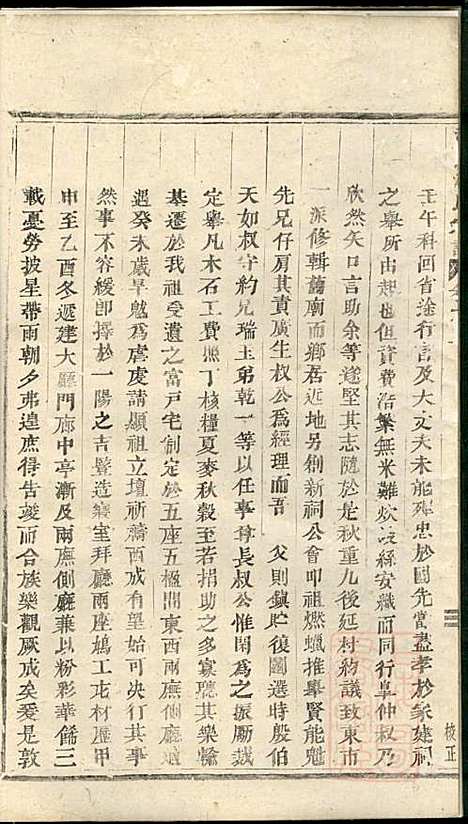 壬午科回省途行言及大丈夫未能殫忠於國先當盡孝於家建祠
之舉所由起也但資費浩繁無米難炊乏絲安織而同行皐仲叔乃
欣然矢口言助余等遂堅其志隨於是秋重九後延村約議致東市
一派修輯舊廟而鄉居近地另剏新祠公會叩祖燃蠟推舉賢能魁
先兄仔肩其責廣生叔公為經理而吾 父則鎮貯復圖選時殷伯
天如叔守約兄瑞玉弟乾一等以任事尊長叔公惟閑為之振厲裁
定舉凡木石工費照丁核糧夏麥秋穀至若捐助之多寡聽其樂愉
基遷於我祖受遺之富戸宅制定於五座五楹間東西兩廡側廳
遇癸未歲旱魃為虐虔請顯祖立壇祈禱酉成有望始可決行其事
然事不容緩即擇於一陽之吉豎造寢室拜廳兩座鳩工庀材歷甲
申至乙酉冬遞建大廳門廊中亭漸及兩廡側廳兼以粉彩華餙三
載憂勞披星帶雨朝夕弗遑庶得告竣而合族樂觀厥成矣爰是敦
校正